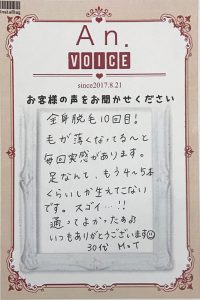 An.
VOICE
since2017.8.21
お客様の声をお聞かせください
全身脱毛10回目!
毛が薄くなってる〜と
毎回実感があります。
足なんて、もう4〜5本
くらいしか生えてこない
です。スゴイ…!!
通ってよかったぁ♪
いつもありがとうございます☺
30代 M・T